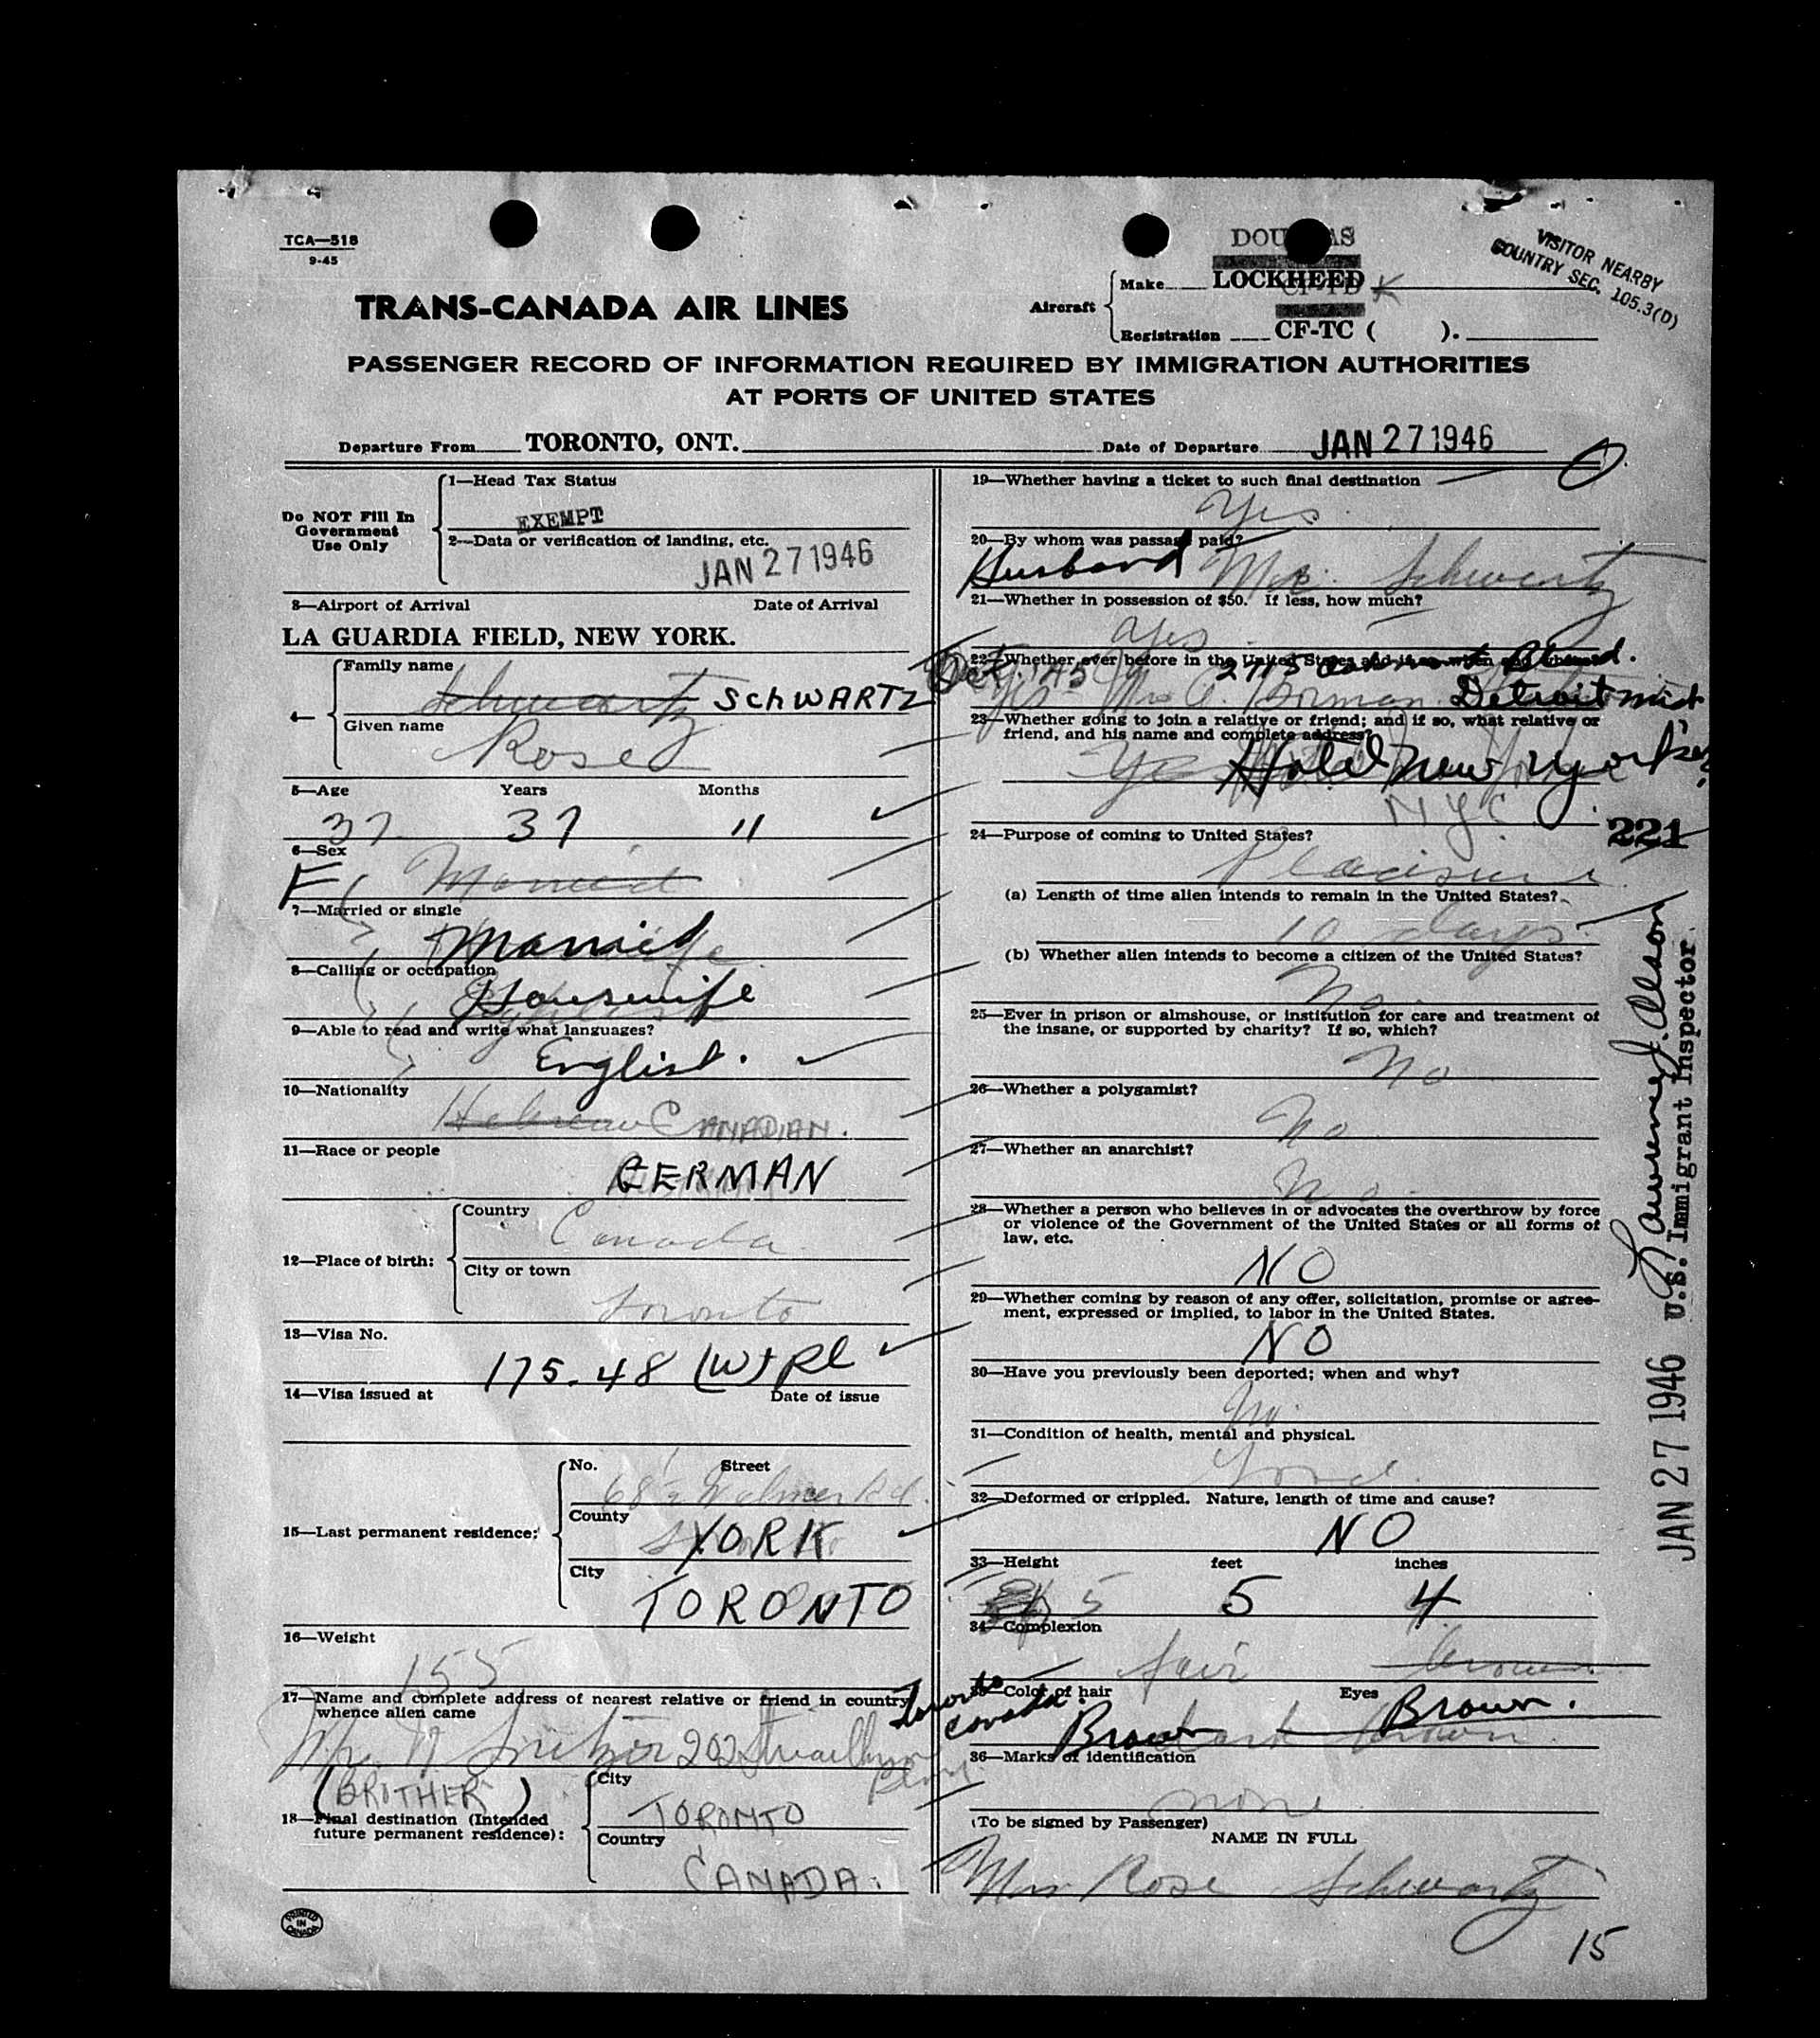 TCA—518
9-45
DOUGLAS
VISITOR NEARBY
COUNTRY SEC. 105.3(D)
Make LOCKHEED K
TRANS-CANADA AIR LINES
Aircraft
Registration CF-TC ( ).
PASSENGER RECORD OF INFORMATION REQUIRED BY IMMIGRATION AUTHORITIES
AT PORTS OF UNITED STATES
Departure From TORONTO, ONT. Date of Departure JAN 27 1946
Do NOT Fill In
Government
Use Only
1—Head Tax Status
EXEMPT
2—Data or verification of landing, etc.
JAN 27 1946
3—Airport of Arrival Date of Arrival
LA GUARDIA FIELD, NEW YORK.
4—
Family name
Schwartz SCHWARTZ
Given name
Rose
5—Age Years Months
37 37 11
6—Sex
F Married
7—Married or single
Married
8—Calling or occupation
Housewife
9—Able to read and write what languages?
English.
10—Nationality
Hebrew CANADIAN.
11—Race or people
GERMAN
12—Place of birth:
Country
Canada
City or town
Toronto
13—Visa No.
175.48 (W) Pl
14—Visa issued at Date of issue
15—Last permanent residence:
No. Street
68 Walmer Rd.
County
YORK
City
TORONTO
16—Weight
155
17—Name and complete address of nearest relative or friend in country
whence alien came
Toronto
Canada
Mr. 202 Blvd.
(BROTHER)
18—Final destination (Intended
future permanent residence):
City
TORONTO
Country
CANADA.
PRINTED
IN
CANADA
19—Whether having a ticket to such final destination
Yes
20—By whom was passage paid?
Husband Mr. Schwartz
21—Whether in possession of $50. If less, how much?
Yes
22—Whether ever before in the United States and if so when and where?
Oct. '45 2715 Blvd.
Yes Mrs Detroit Mich
23—Whether going to join a relative or friend; and if so, what relative or
friend, and his name and complete address?
Hotel New Yorker
NYC
24—Purpose of coming to United States?
221
Pleasure
(a) Length of time alien intends to remain in the United States?
10 days.
(b) Whether alien intends to become a citizen of the United States?
No.
25—Ever in prison or almshouse, or institution for care and treatment of
the insane, or supported by charity? If so, which?
No
26—Whether a polygamist?
No
27—Whether an anarchist?
No.
28—Whether a person who believes in or advocates the overthrow by force
or violence of the Government of the United States or all forms of
law, etc.
NO
29—Whether coming by reason of any offer, solicitation, promise or agree-
ment, expressed or implied, to labor in the United States.
NO
30—Have you previously been deported; when and why?
No.
31—Condition of health, mental and physical.
Good.
32—Deformed or crippled. Nature, length of time and cause?
NO
33—Height feet inches
5 5 4
34—Complexion
fair brown
35—Color of hair Eyes
Brown Brown.
dark brown
36—Marks of identification
none
(To be signed by Passenger)
NAME IN FULL
Mrs Rose Schwartz
15
U.S. Immigrant Inspector
JAN 27 1946